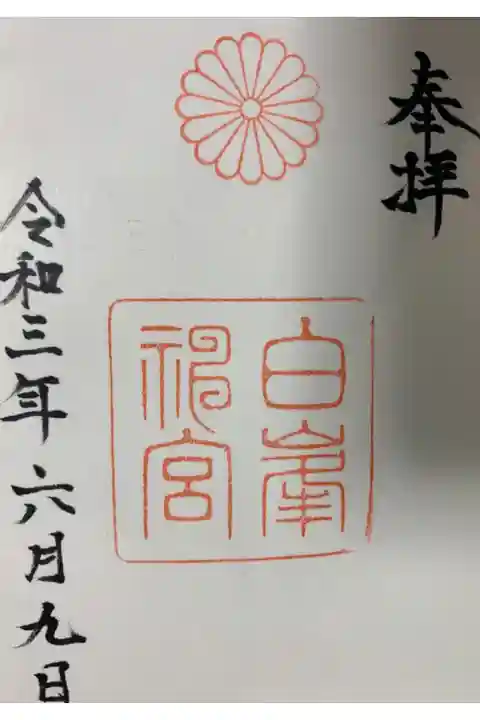 奉拝
白峯
神宮
令和三年六月九日